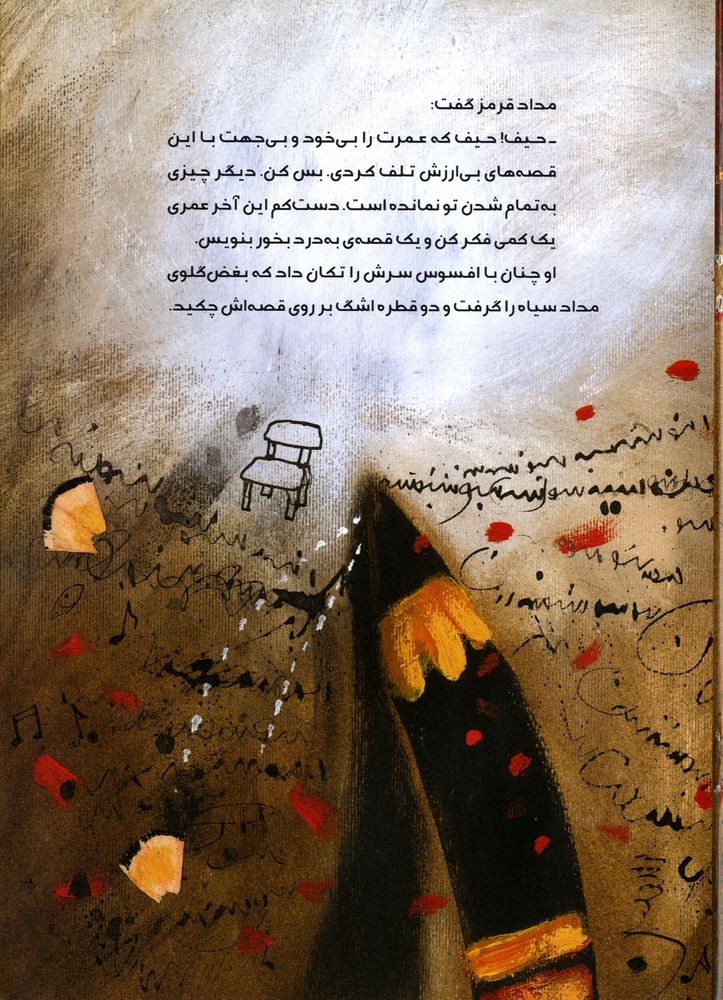 مداد قرمز گفت:
ـ حیف! حیف که عمرت را بی‌خود و بی‌جهت با این
قصه‌های بی‌ارزش تلف کردی. بس کن. دیگر چیزی
به‌تمام شدن تو نمانده است. دست‌کم این آخر عمری
یک کمی فکر کن و یک قصه‌ی به‌درد بخور بنویس.
او چنان با افسوس سرش را تکان داد که بغض گلوی
مداد سیاه را گرفت و دو قطره اشگ بر روی قصه‌اش چکید.